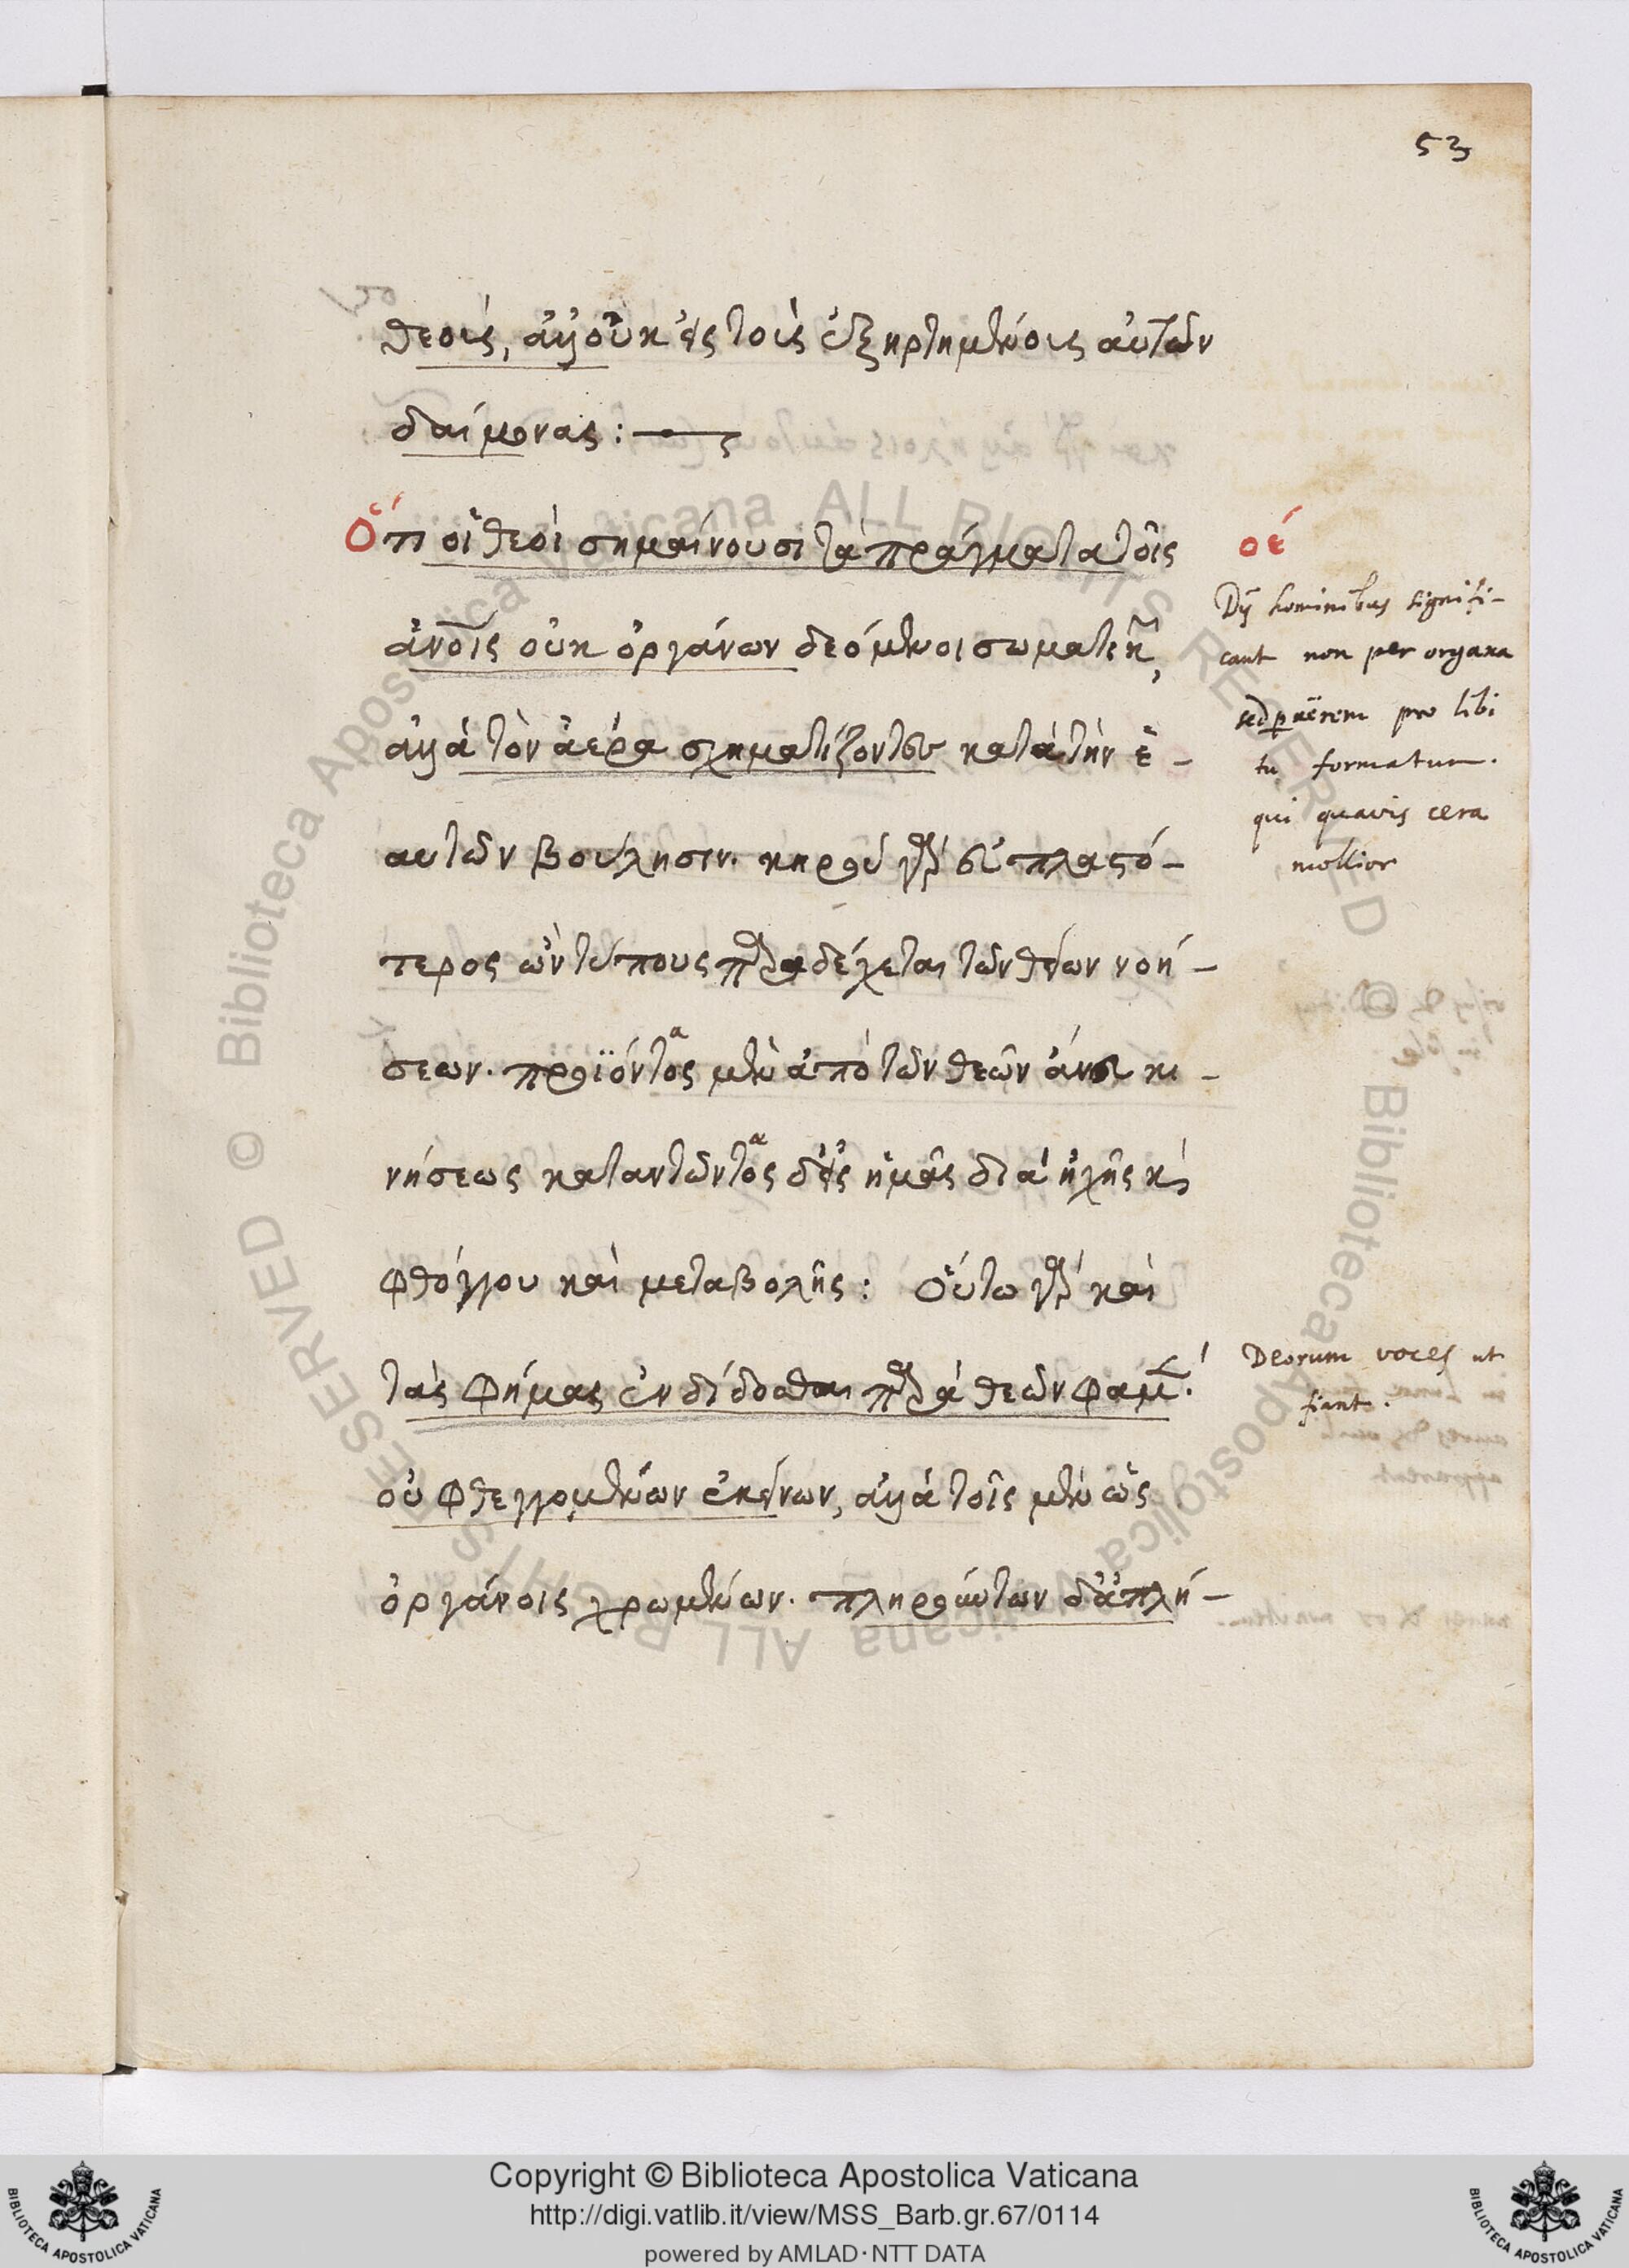 53
θεοὶς, ἀλλ' οὐκ εἰς τοὺς ἐξηρτημένους αὐτῶν
δαίμονας:
Ὅτι οἱ θεοὶ σημαίνουσι τὰ πράγματα τοῖς
ἀνοις οὐκ ὀργάνων δεόμενοι σωματικῶν,
ἀλλὰ τὸν ἀέρα σχηματίζοντες κατὰ τὴν ἑ-
αυτῶν βούλησιν. κηροῦ γὰρ εὐπλαστό-
τερος ὢν τύπους παραδέχεται τῶν θείων νοή-
σεων. προϊόντας μὲν ἀπὸ τῶν θεῶν ἄνευ κι-
νήσεως καταντῶντας δ' εἰς ἡμᾶς διὰ ἠχῆς κὶ
φθόγγου καὶ μεταβολῆς: Οὕτω γὰρ καὶ
τὰς φήμας ἐνδίδοσθαι παρὰ θεῶν φαμέν·
οὐ φθεγγομένων ἐκείνων, ἀλλὰ τοῖς μὲν ὡς
ὀργάνοις χρωμένων. πληρούντων δ' ἀπλή-
οέ
Dij hominibus signifi-
cant non per organa
sed per aërem pro libi
tu formatum.
qui quavis cera
mollior
Deorum voces ut
fiant.
© Biblioteca Apostolica Vaticana ALL RIGHTS RESERVED © Biblioteca Apostolica Vaticana ALL RIGHTS RESERVED
Copyright © Biblioteca Apostolica Vaticana
http://digi.vatlib.it/view/MSS_Barb.gr.67/0114
powered by AMLAD·NTT DATA
BIBLIOTECA APOSTOLICA VATICANA
BIBLIOTECA APOSTOLICA VATICANA